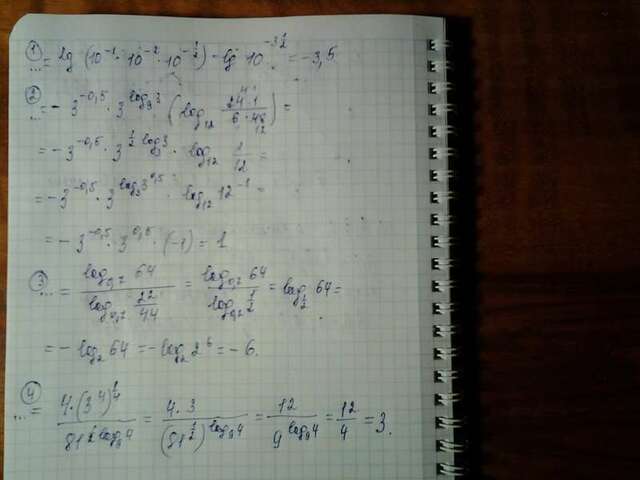 ① ... = lg (10^-1 · 10^-2 · 10^-1/2) = lg 10^-3 1/2 = -3,5
② ... = - 3^-0,5 · 3^log_9 3 (log_12 24·1 / 6·48) =
= - 3^-0,5 · 3^1/2 log_3 3 · log_12 1/12 =
= - 3^-0,5 · 3^log_3 3^0,5 · log_12 12^-1 =
= - 3^-0,5 · 3^0,5 · (-1) = 1
③ ... = log_0,2 64 / log_0,2 22/44 = log_0,2 64 / log_0,2 1/2 = log_1/2 64 =
= - log_2 64 = - log_2 2^6 = - 6.
④ ... = 4·(3^4)^1/4 / 81^1/2 log_9 4 = 4·3 / (81^1/2)^log_9 4 = 12 / 9^log_9 4 = 12/4 = 3.